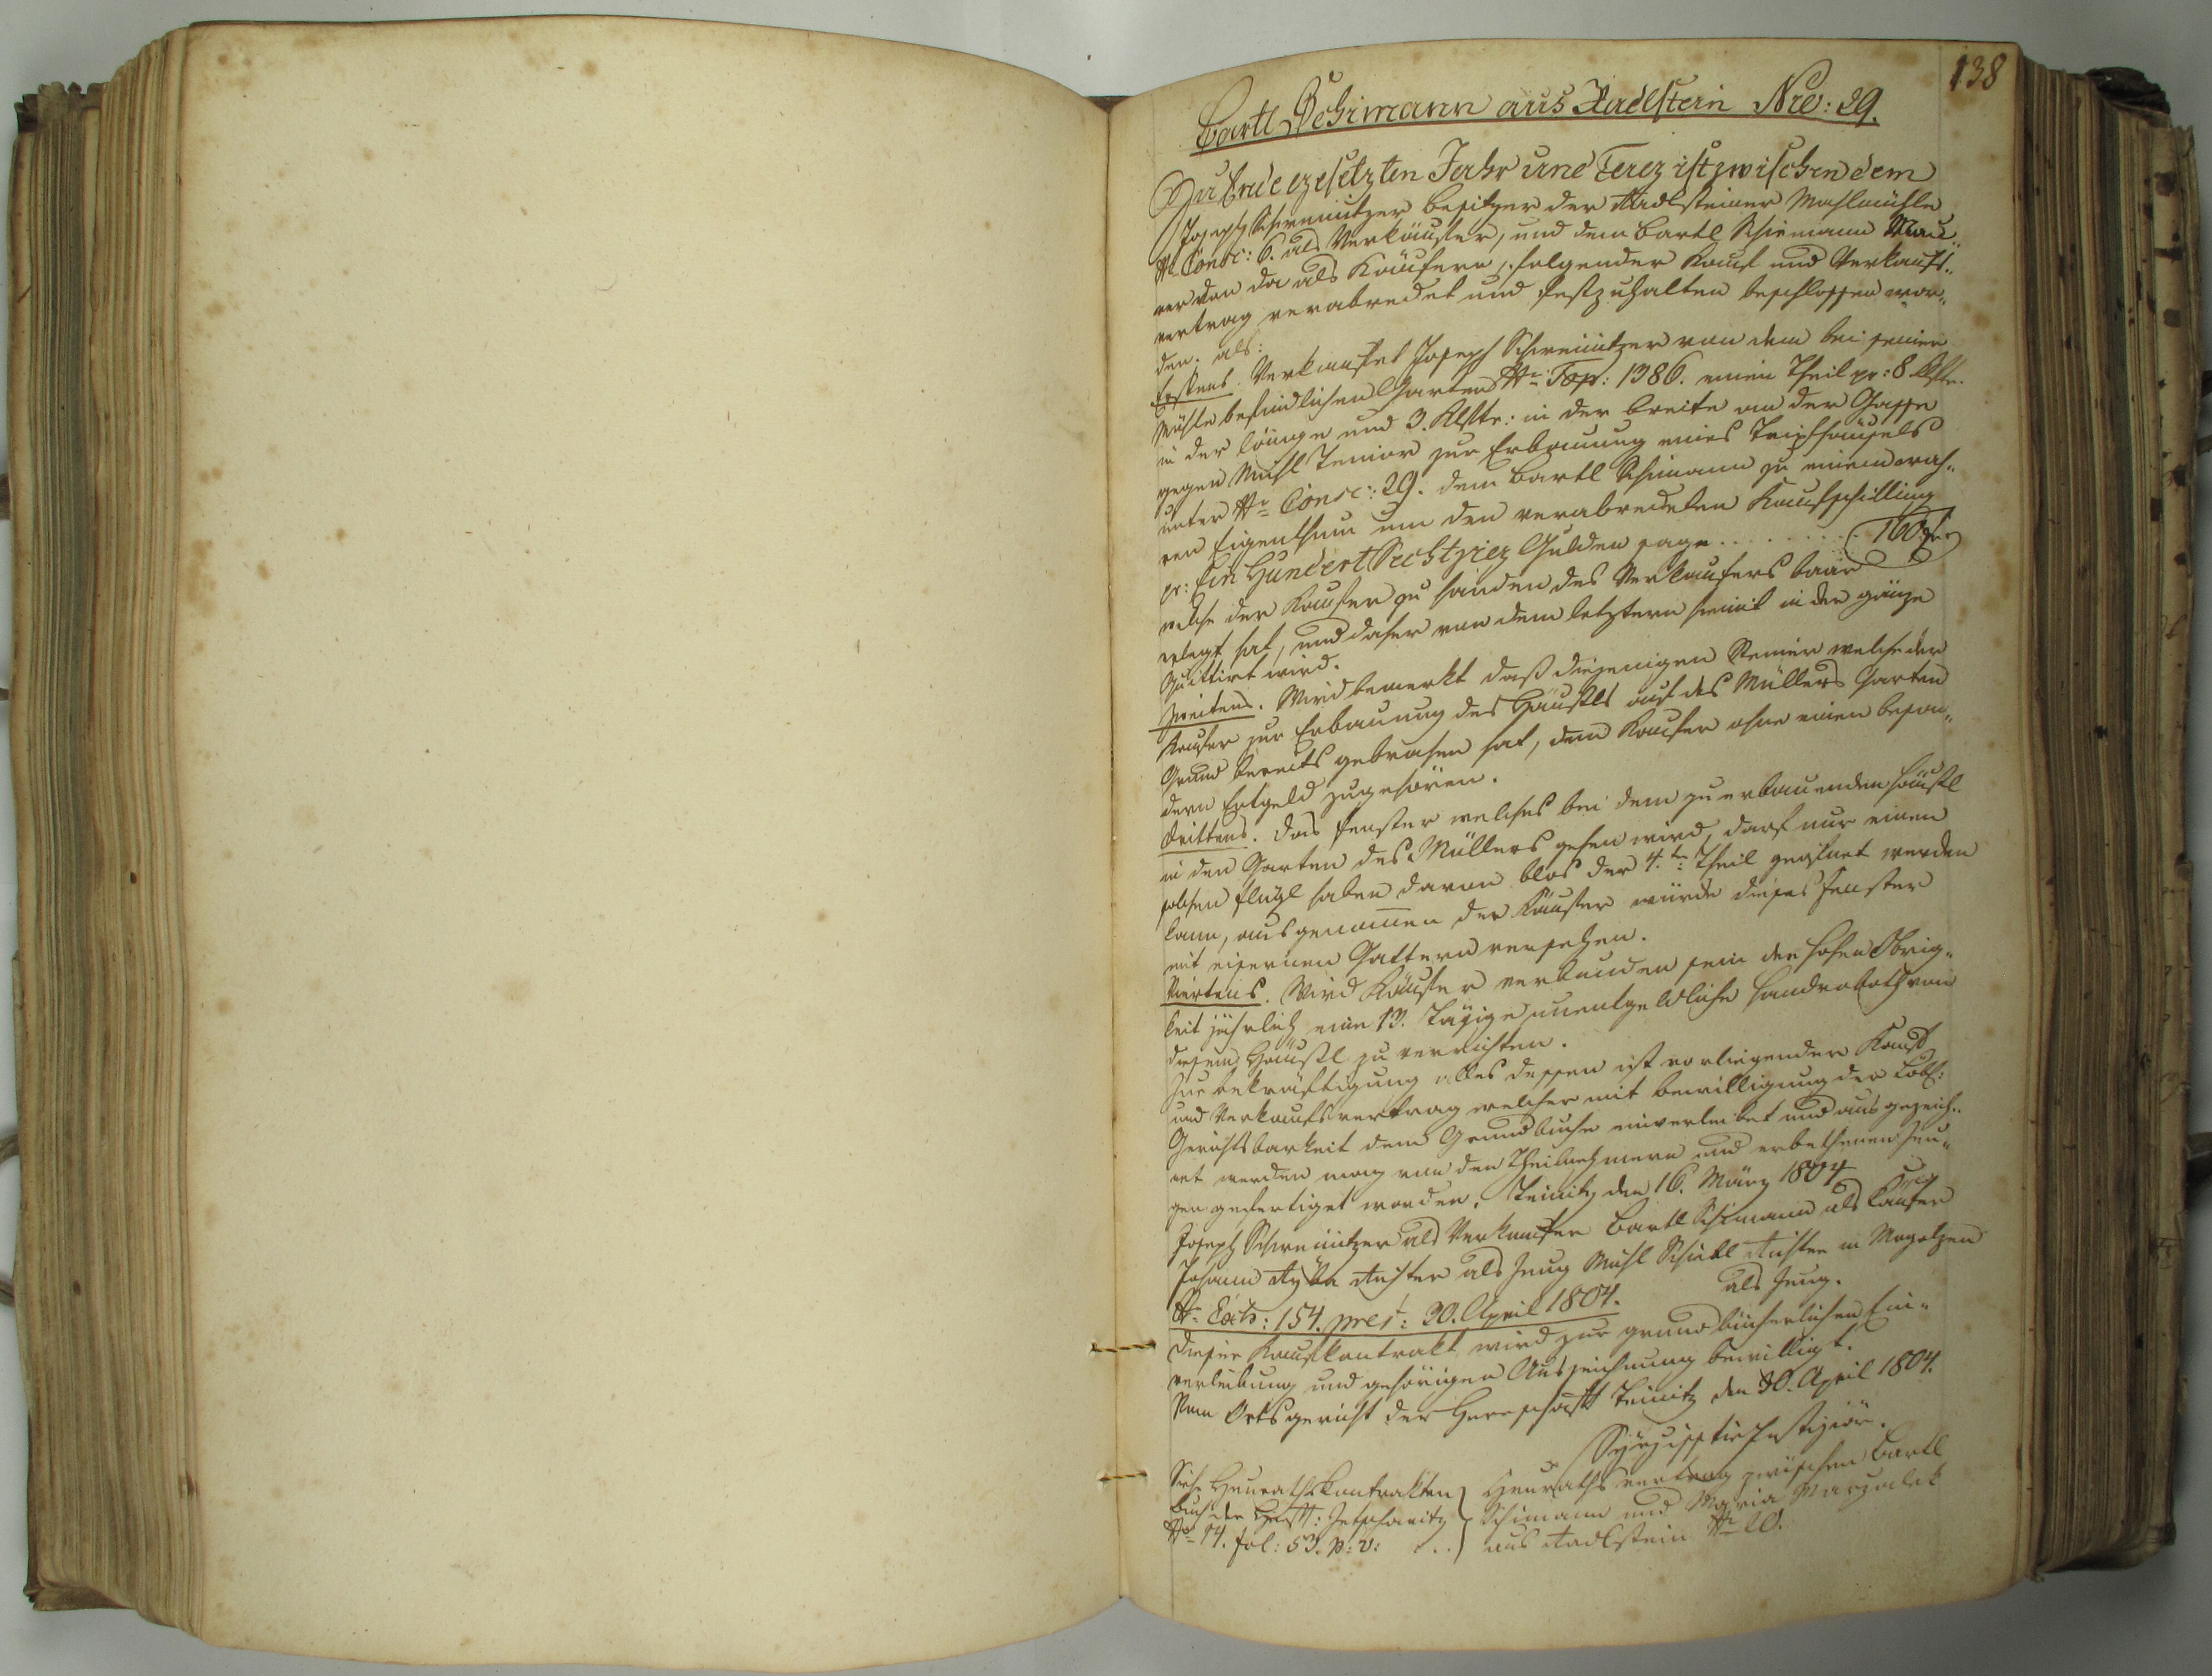 138
Bartl Schimann aus Radlstein Nro: 29.
Zu Ende gesetzten Jahr und Tag ist zwischen dem
Joseph Schreinitzer Besitzer der Radlsteiner Mahlmühle
Nr. Consc: 6. als Verkäufer, und dem Bartl Schimann Mau„
rer von da als Käufern, folgender Kauf und Verkaufs„
vertrag verabredet und festzuhalten beschlossen wor„
den. als:
Erstens. Verkaufet Joseph Schreinitzer von dem bei seiner
Mühle befindlichen Garten Nr. Top: 1386. einen Theil pr: 8 Klftr.
in der länge und 3. Klftr: in der breite an der Gasse
gegen zur Erbauung eines
unter Nr. Consc: 29. dem Bartl Schimann zu einem wah„
ren Eigenthum um den verabredeten Kaufschilling
pr: Ein Hundert Sechtzig Gulden sage . . . . . . . 160 f
welche der Kaufer zu handen des Verkaufers baar
erlegt hat, und daher von dem letztern hiemit in der gänze
Quittirt wird.
Zweitens. Wird bemerkt daß diejenigen Steiner welche der
Kaufer zur Erbauung des Häußls auf des Müllers Garten
Grund bereits gebrochen hat, dem Kaufer ohne einen beson„
dern Entgeld zugehören.
Drittens. Das fenster welches bei dem zu erbauenden Häußl
in den Garten des Müllers gehen wird, darf nur einen
solchen flügl haben davon blos der 4.te Theil geöfnet werden
kann, ausgenommen der Käufer würde dieses Fenster
mit eisernen Gattern versehen.
Viertens. Wird Käufer verbunden sein der hohen Obrig„
keit jährlich eine 13. Tägige unentgeldliche Handroboth von
diesem Häußl zu verrichten.
Zur bekräftigung alles dessen ist vorliegender Kauf
und Verkaufsvertrag welcher mit bewilligung der Löbl:
Gerichtsbarkeit dem Grundbuche einverleibet und ausgezeich„
net werden mag von den Theilnehmern und erbethenen Zeu„
gen gefertiget worden. Teinitz den 16. März 1804
Joseph Schreinitzer als Verkaufer Bartl Schimann als Käufer
Johann Richter als Zeug Richter in
als Zeug.
Nr. Exh: 154. pres: 30. April 1804.
Dieser Kaufkontrakt wird zur grundbücherlichen Ein„
verleibung und gehörigen Auszeichnung bewilligt.
Vom Ortsgericht der Herrschaft Teinitz den 30. April 1804.
Justiziär.
Siehe Heuraths Kontrakten
Buch der Hrschft:
Nr. 14. fol: 53. p: v: . . .
Heurathsvertrag zwischen Bartl
Schimann und Maria
aus Radlstein Nr. 20.